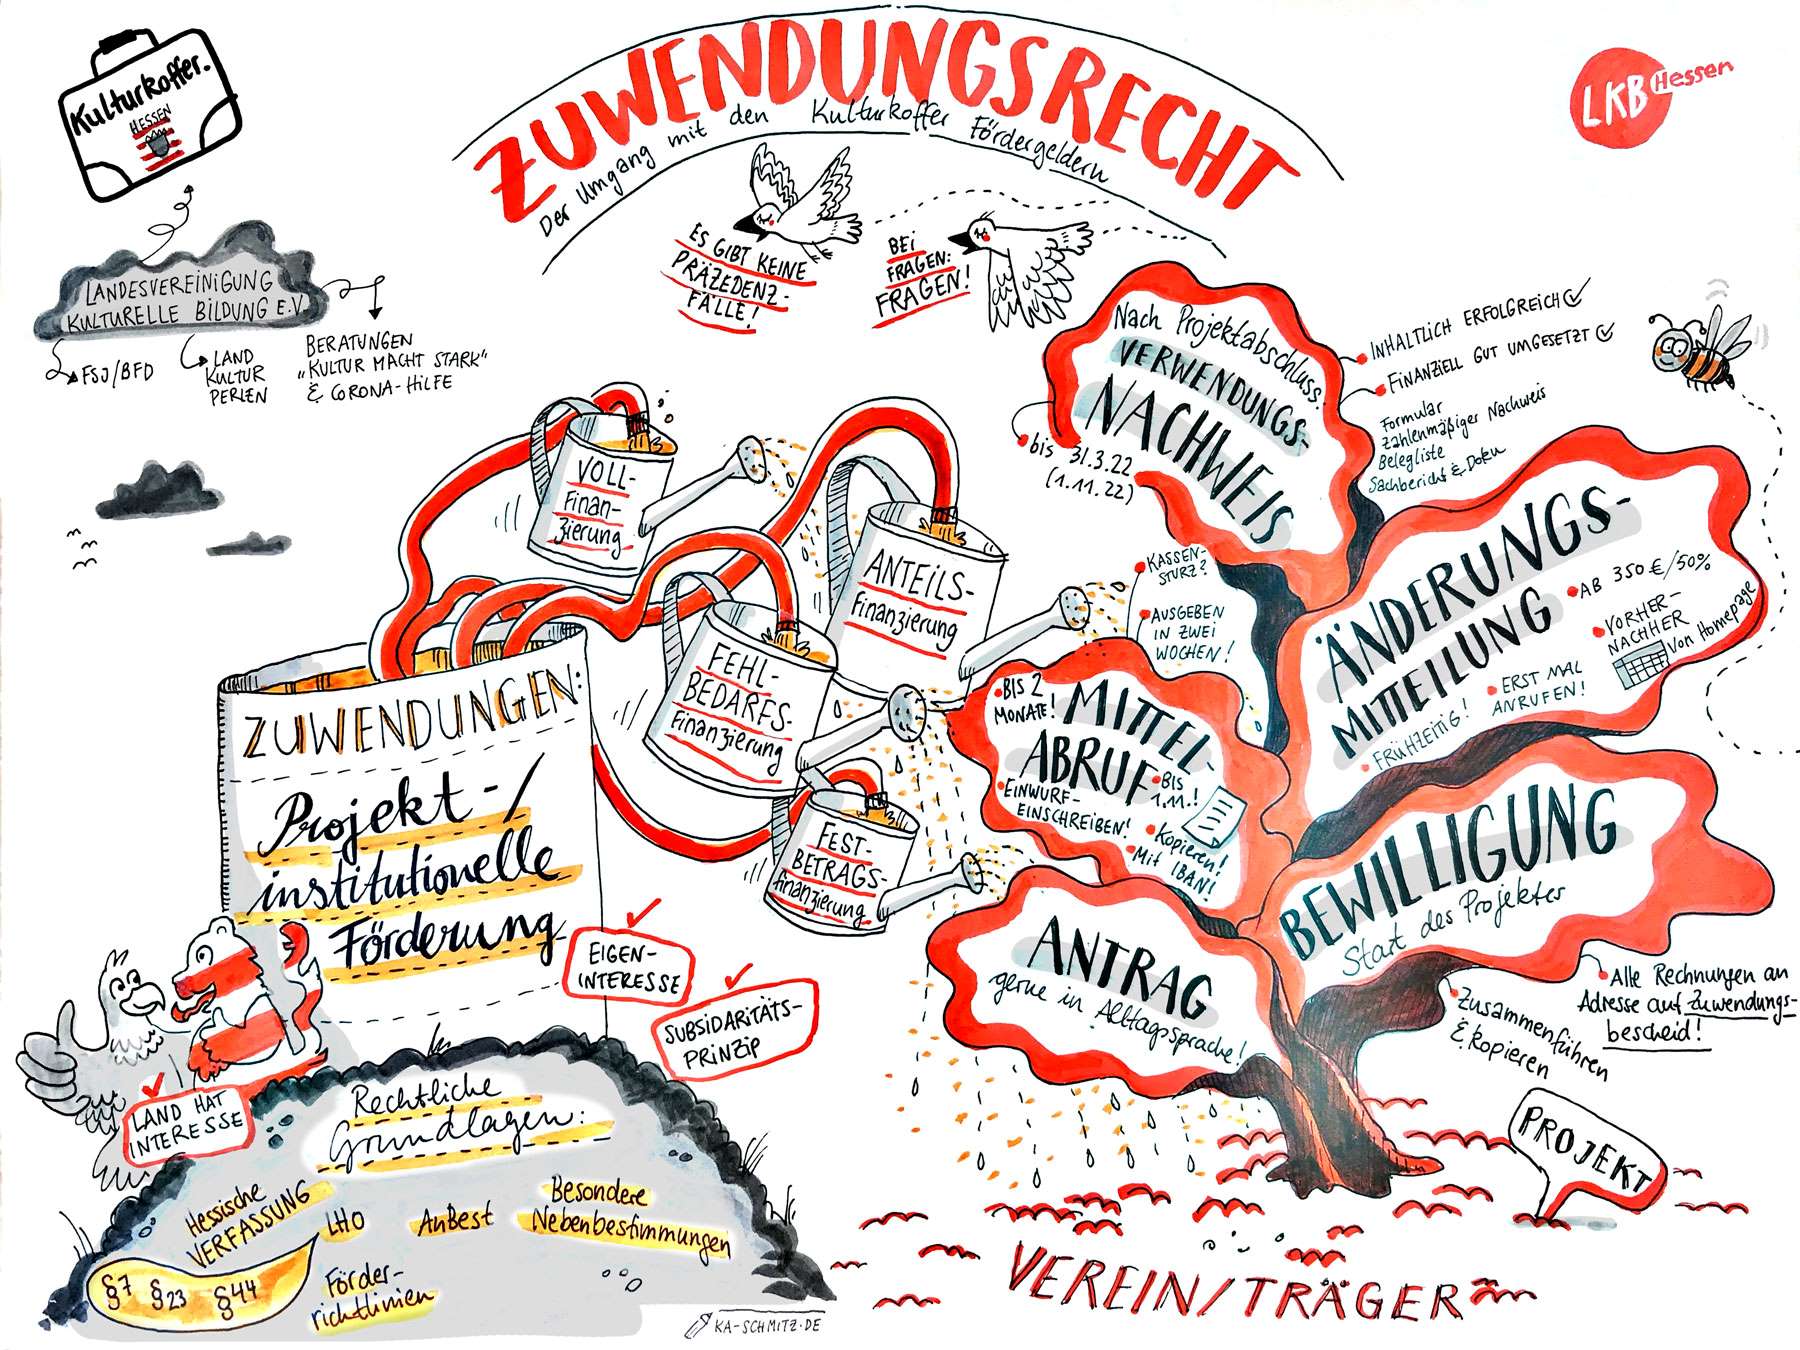 Kulturkoffer.
HESSEN
ZUWENDUNGSRECHT
Der Umgang mit den Kulturkoffer Fördergeldern
LKB Hessen
LANDESVEREINIGUNG
KULTURELLE BILDUNG E.V.
FSJ/BFD
LAND
KULTUR
PERLEN
BERATUNGEN
„KULTUR MACHT STARK"
& CORONA-HILFE
ES GIBT KEINE
PRÄZEDENZ-
FÄLLE!
BEI
FRAGEN:
FRAGEN!
VOLL-
Finan-
zierung
ANTEILS-
finanzierung
FEHL-
BEDARFS-
finanzierung
FEST-
BETRAGS-
finanzierung
ZUWENDUNGEN:
Projekt-/
institutionelle
Förderung
EIGEN-
INTERESSE
SUBSIDARITÄTS-
PRINZIP
LAND HAT
INTERESSE
Rechtliche
Grundlagen:
Hessische
VERFASSUNG
LHO
AnBest
Besondere
Nebenbestimmungen
§7 §23 §44
Förder-
richtlinien
KA-SCHMITZ.DE
Nach Projektabschluss:
VERWENDUNGS-
NACHWEIS
bis 31.3.22
(1.11.22)
INHALTLICH ERFOLGREICH
FINANZIELL GUT UMGESETZT
Formular
zahlenmäßiger Nachweis
Belegliste
Sachbericht & Doku
ÄNDERUNGS-
MITTEILUNG
AB 350 €/50%
VORHER-
NACHHER
Von Homepage
ERST MAL
ANRUFEN!
FRÜHZEITIG!
KASSEN-
STURZ?
AUSGEBEN
IN ZWEI
WOCHEN!
BIS 2
MONATE!
MITTEL-
ABRUF
BIS
1.11.!
EINWURF-
EINSCHREIBEN!
Kopieren!
Mit IBAN!
BEWILLIGUNG
Start des Projektes
Alle Rechnungen an
Adresse auf Zuwendungs-
bescheid!
Zusammenführen
& Kopieren
ANTRAG
gerne in Alltagssprache!
PROJEKT
VEREIN/TRÄGER